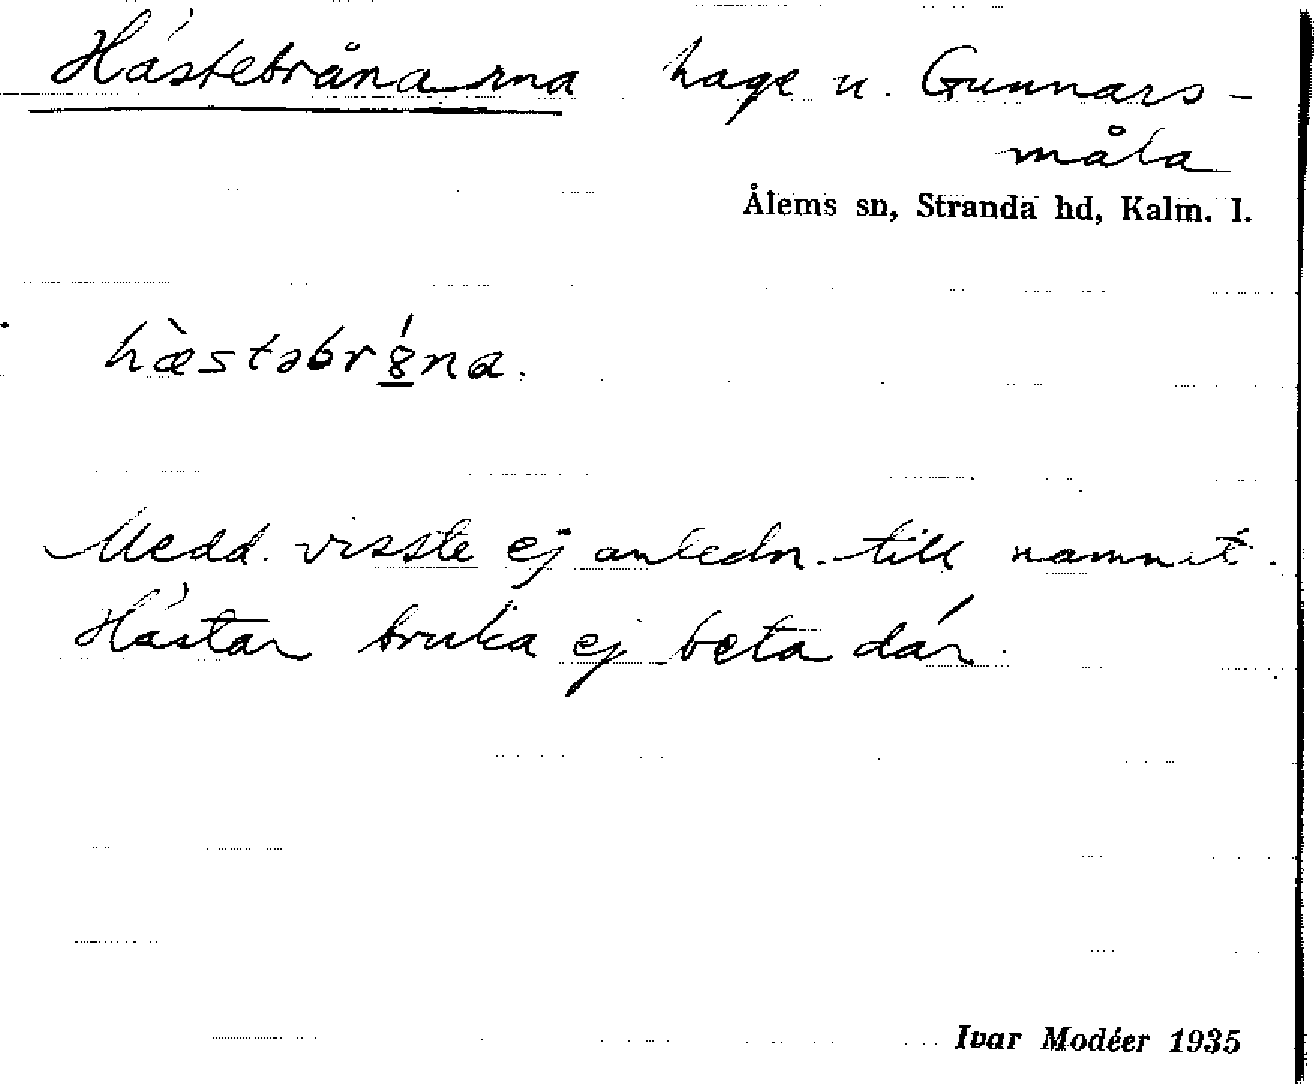 Hästebrånarna hage u. Gunnars-
måla
Ålems sn, Stranda hd, Kalm. l.
hæ̀stəbr8́na.
Medd. visste ej anledn. till namnet.
Hästar bruka ej beta där.
Ivar Modéer 1935